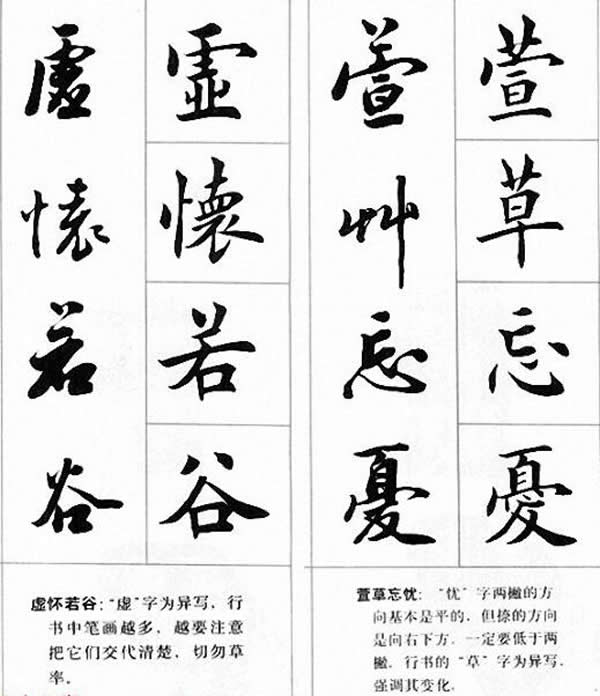 虛懷若谷
虛懷若谷
虚怀若谷：“虚”字为异写，行
书中笔画越多，越要注意
把它们交代清楚，切勿草
率。
萱艸忘憂
萱草忘憂
萱草忘忧：“忧”字两撇的方
向基本是平的，但捺的方向
是向右下方，一定要低于两
撇。行书的“草”字为异写，
强调其变化。